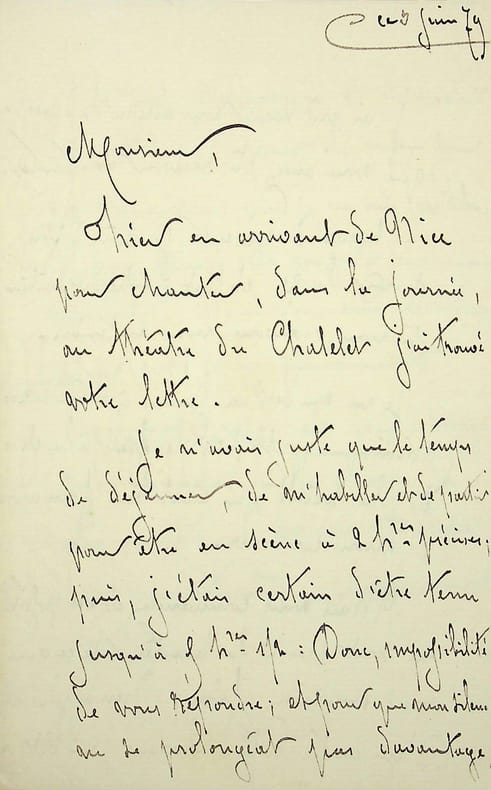 ce 5 juin 79
Monsieur,
Hier en arrivant de Nice
pour chanter, dans la journée,
au théâtre du Chatelet j'ai trouvé
votre lettre.
Je n'avais juste que le temps
de déjeuner, de m'habiller et de partir
pour être en scène à 2 hres précises;
puis, j'étais certain d'être tenu
jusqu'à 5 hres 1/2 : Donc, impossibilité
de vous répondre; et pour que mon silence
ne se prolongeât pas davantage,